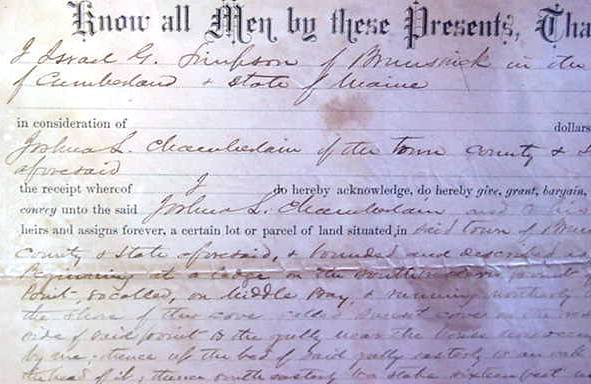 Know all Men by these Presents, Tha
I Israel G. Simpson of Brunswick in the
of Cumberland & State of Maine
in consideration of dollars
Joshua L. Chamberlain of the town county & S
aforesaid
the receipt whereof I do hereby acknowledge, do hereby give, grant, bargain,
convey unto the said Joshua L. Chamberlain and to his
heirs and assigns forever, a certain lot or parcel of land situated in said town of Brun
county & State aforesaid, & bounded and described as
Beginning at a ledge on the southwestern point of
Point, so called, on Middle Bay, & running northerly
the shore of the cove called cove on the
side of said point to the gully near the house
by me; thence up the bed of said gully easterly to an oak
the head of it; thence south easterly to a stake sixteen feet